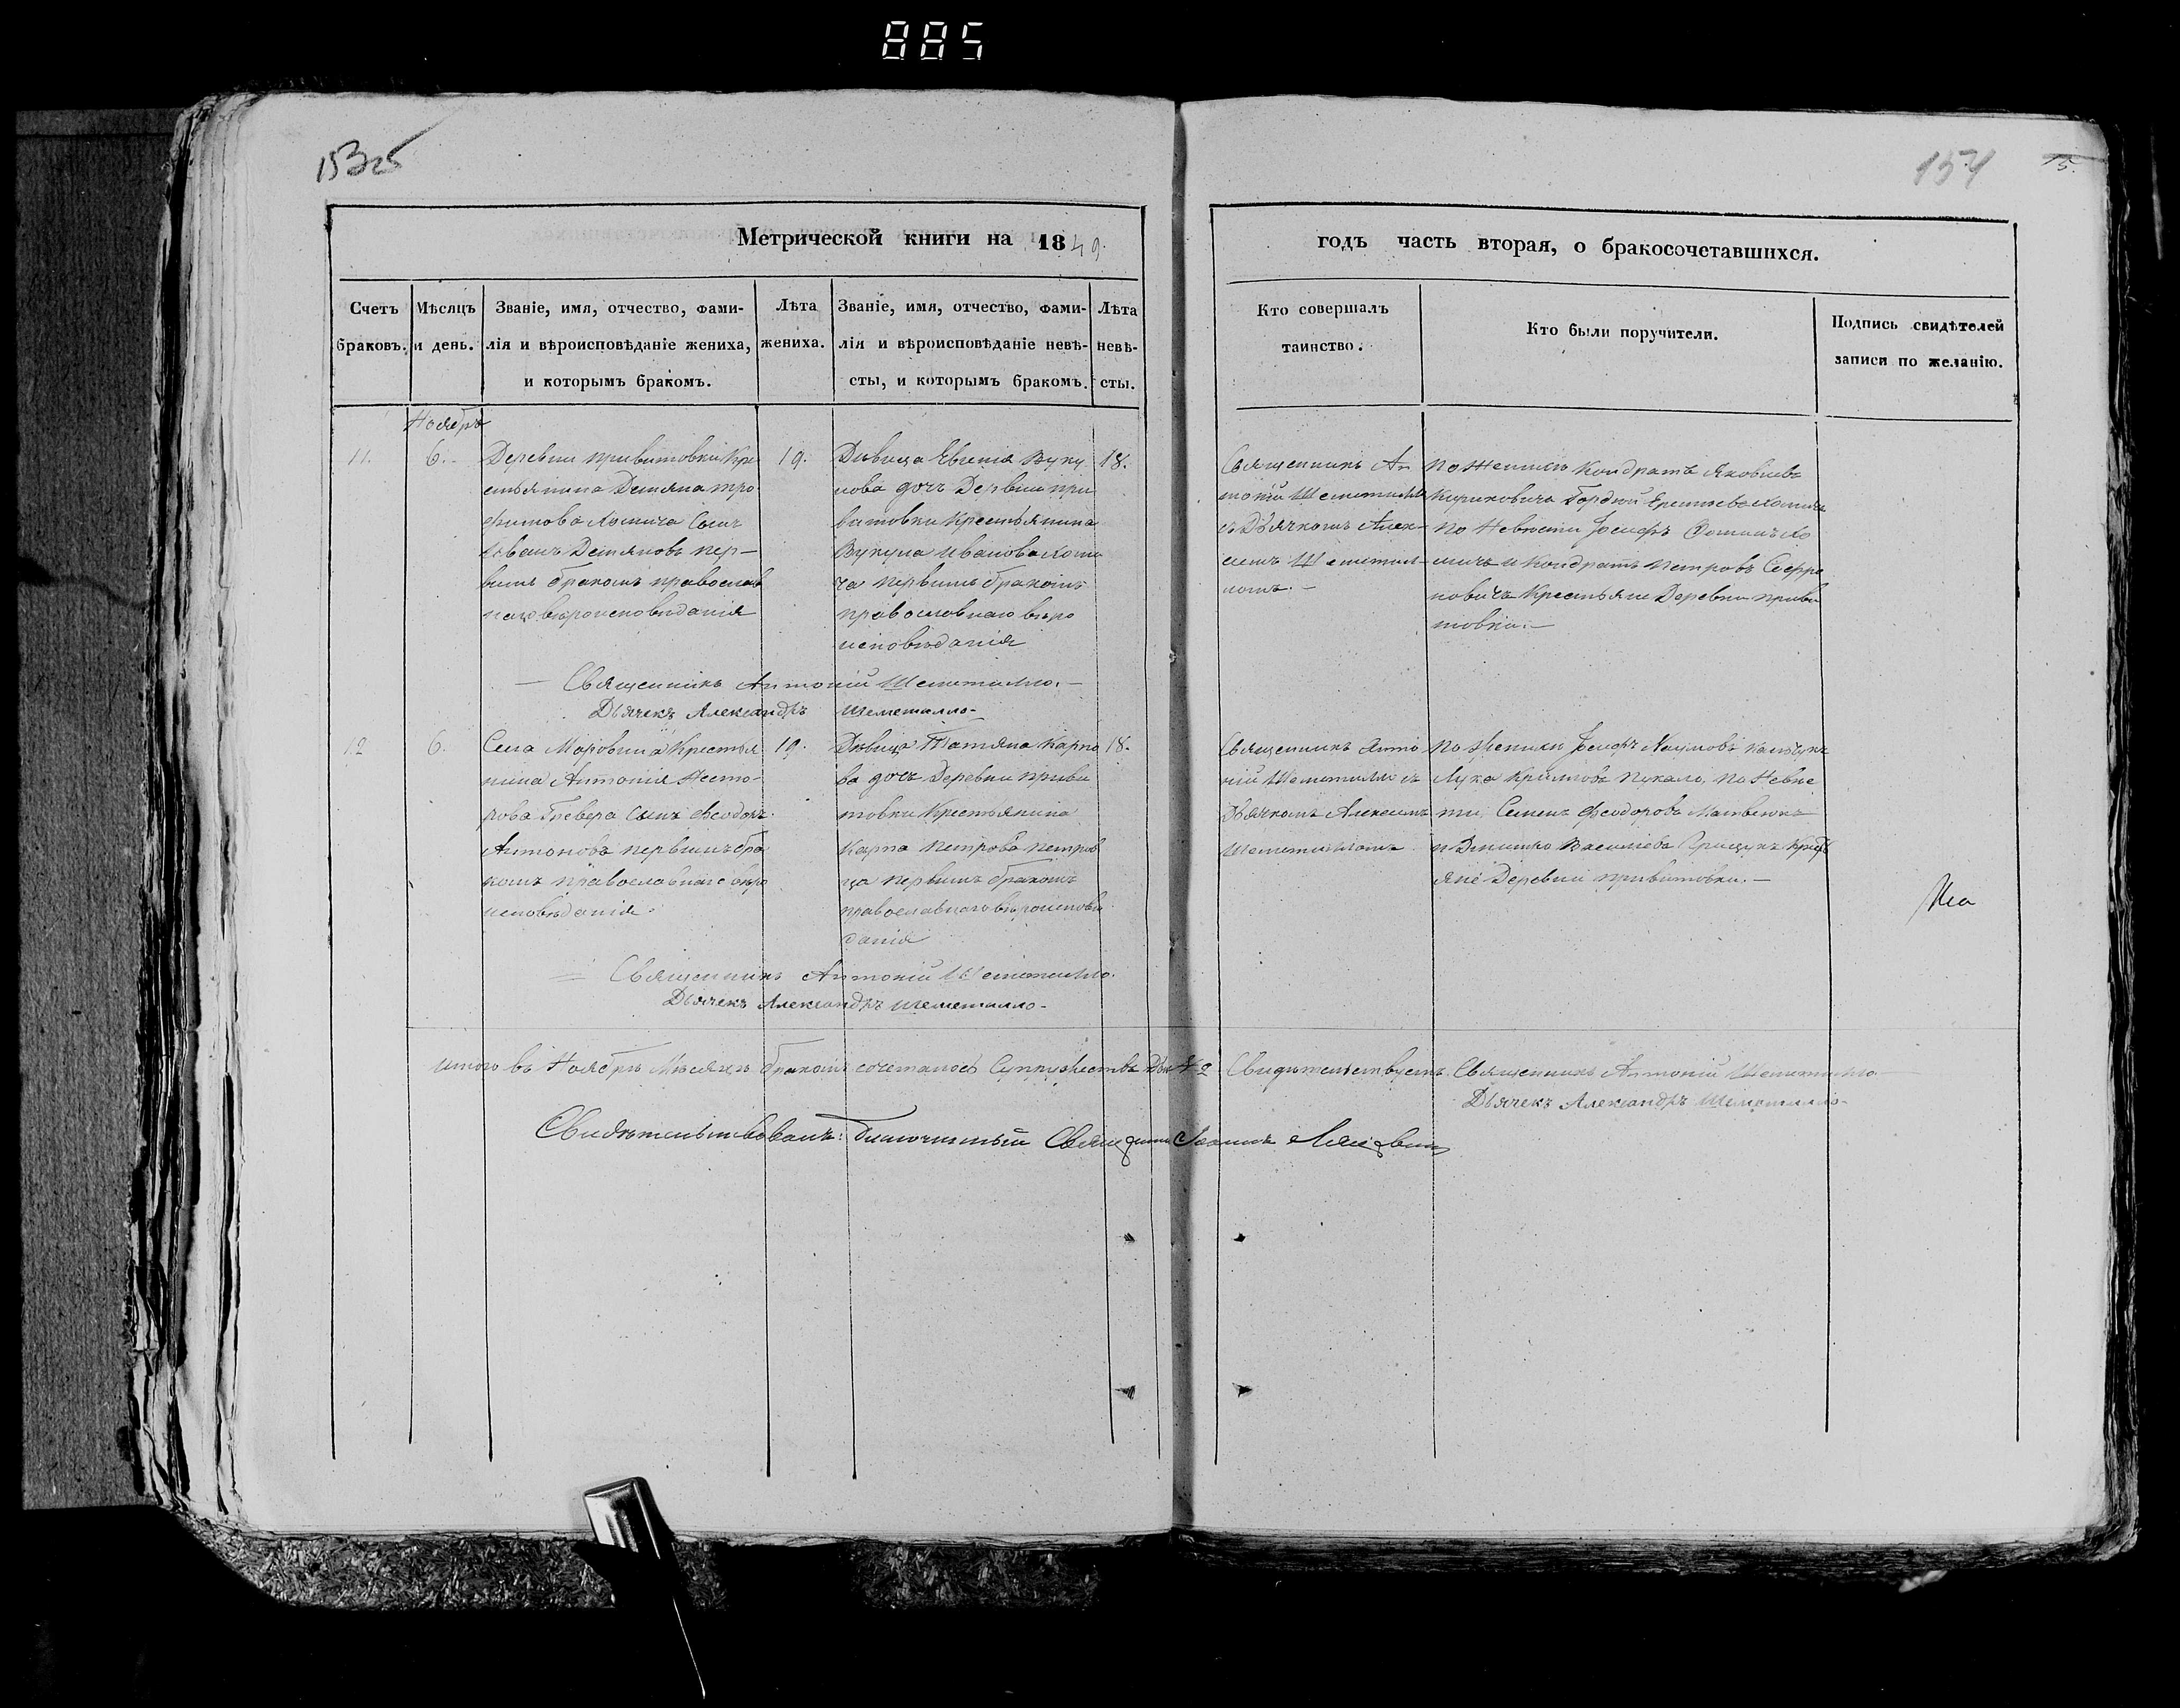 885
153об
154
15.
Метрической книги на 1849.
годъ часть вторая, о бракосочетавшихся.
Счетъ браковъ.
Мѣсяцъ и день.
Званіе, имя, отчество, фами-
лія и вѣроисповѣданіе жениха,
и которымъ бракомъ.
Лѣта жениха.
Званіе, имя, отчество, фами-
лія и вѣроисповѣданіе невѣ-
сты, и которымъ бракомъ.
Лѣта невѣ-
сты.
Кто совершалъ
таинство.
Кто были поручители.
Подпись свидѣтелей
записи по желанію.
Ноябрь
11.
6.
Деревни Привитовки Кре
стьянина Демяна Тро
фимова Хомича сынъ
Иванъ Демяновъ пер-
вымъ бракомъ православ
наго вѣроисповѣданія
19.
Дѣвица Евгенія Вуку
лова дочь Деревни При
витовки Крестьянина
Вукула Иванова Хоми
ча первымъ бракомъ
православнаго вѣро
исповѣданія
18.
Священникъ Ан
тоній Шеметилло
съ Дьячкомъ Алек-
симъ Шеметил-
ломъ.-
По Женихѣ Кондратъ Яковлевъ
Гордій
По Невѣсти Іосифъ Фоминъ Хо
мичъ и Кондратъ Петровъ Сафро
новичъ Крестьяне Деревни Приви
товки.-
Священникъ Антоній Шеметилло.-
Дьячекъ Александръ Шеметилло-
12
6.
Села Крестья
нина Антонія Несто-
рова сынъ Феодоръ
Антоновъ первымъ бра
комъ православнаго вѣро
исповѣданія.
19.
Дѣвица Татяна Карпо
ва дочь Деревни Приви
товки Крестьянина
Карпа Петрова Петров
ца первымъ бракомъ
православнаго вѣроисповѣ
данія
18.
Священникъ Анто
ній Шеметилло съ
Дьячкомъ Алексимъ
Шеметилломъ
По Женихи Іосифъ Наумовъ
Лука По Невѣс
ти, Семенъ Феодоровъ Матвеюкъ
и Василіевъ Грицукъ Крест
яне Деревни Привитовки.-
Священникъ Антоній Шеметилло.
Дьячекъ Александръ Шеметилло-
Итого въ Ноябрѣ Мѣсяцѣ бракомъ сочеталось Супружествъ Два № 2 Свидѣтельствуетъ Священникъ Антоній Шеметилло
Дьячекъ Александръ Шеметилло-
Свидѣтельствовалъ: Благочинный Священникъ Іоаннъ